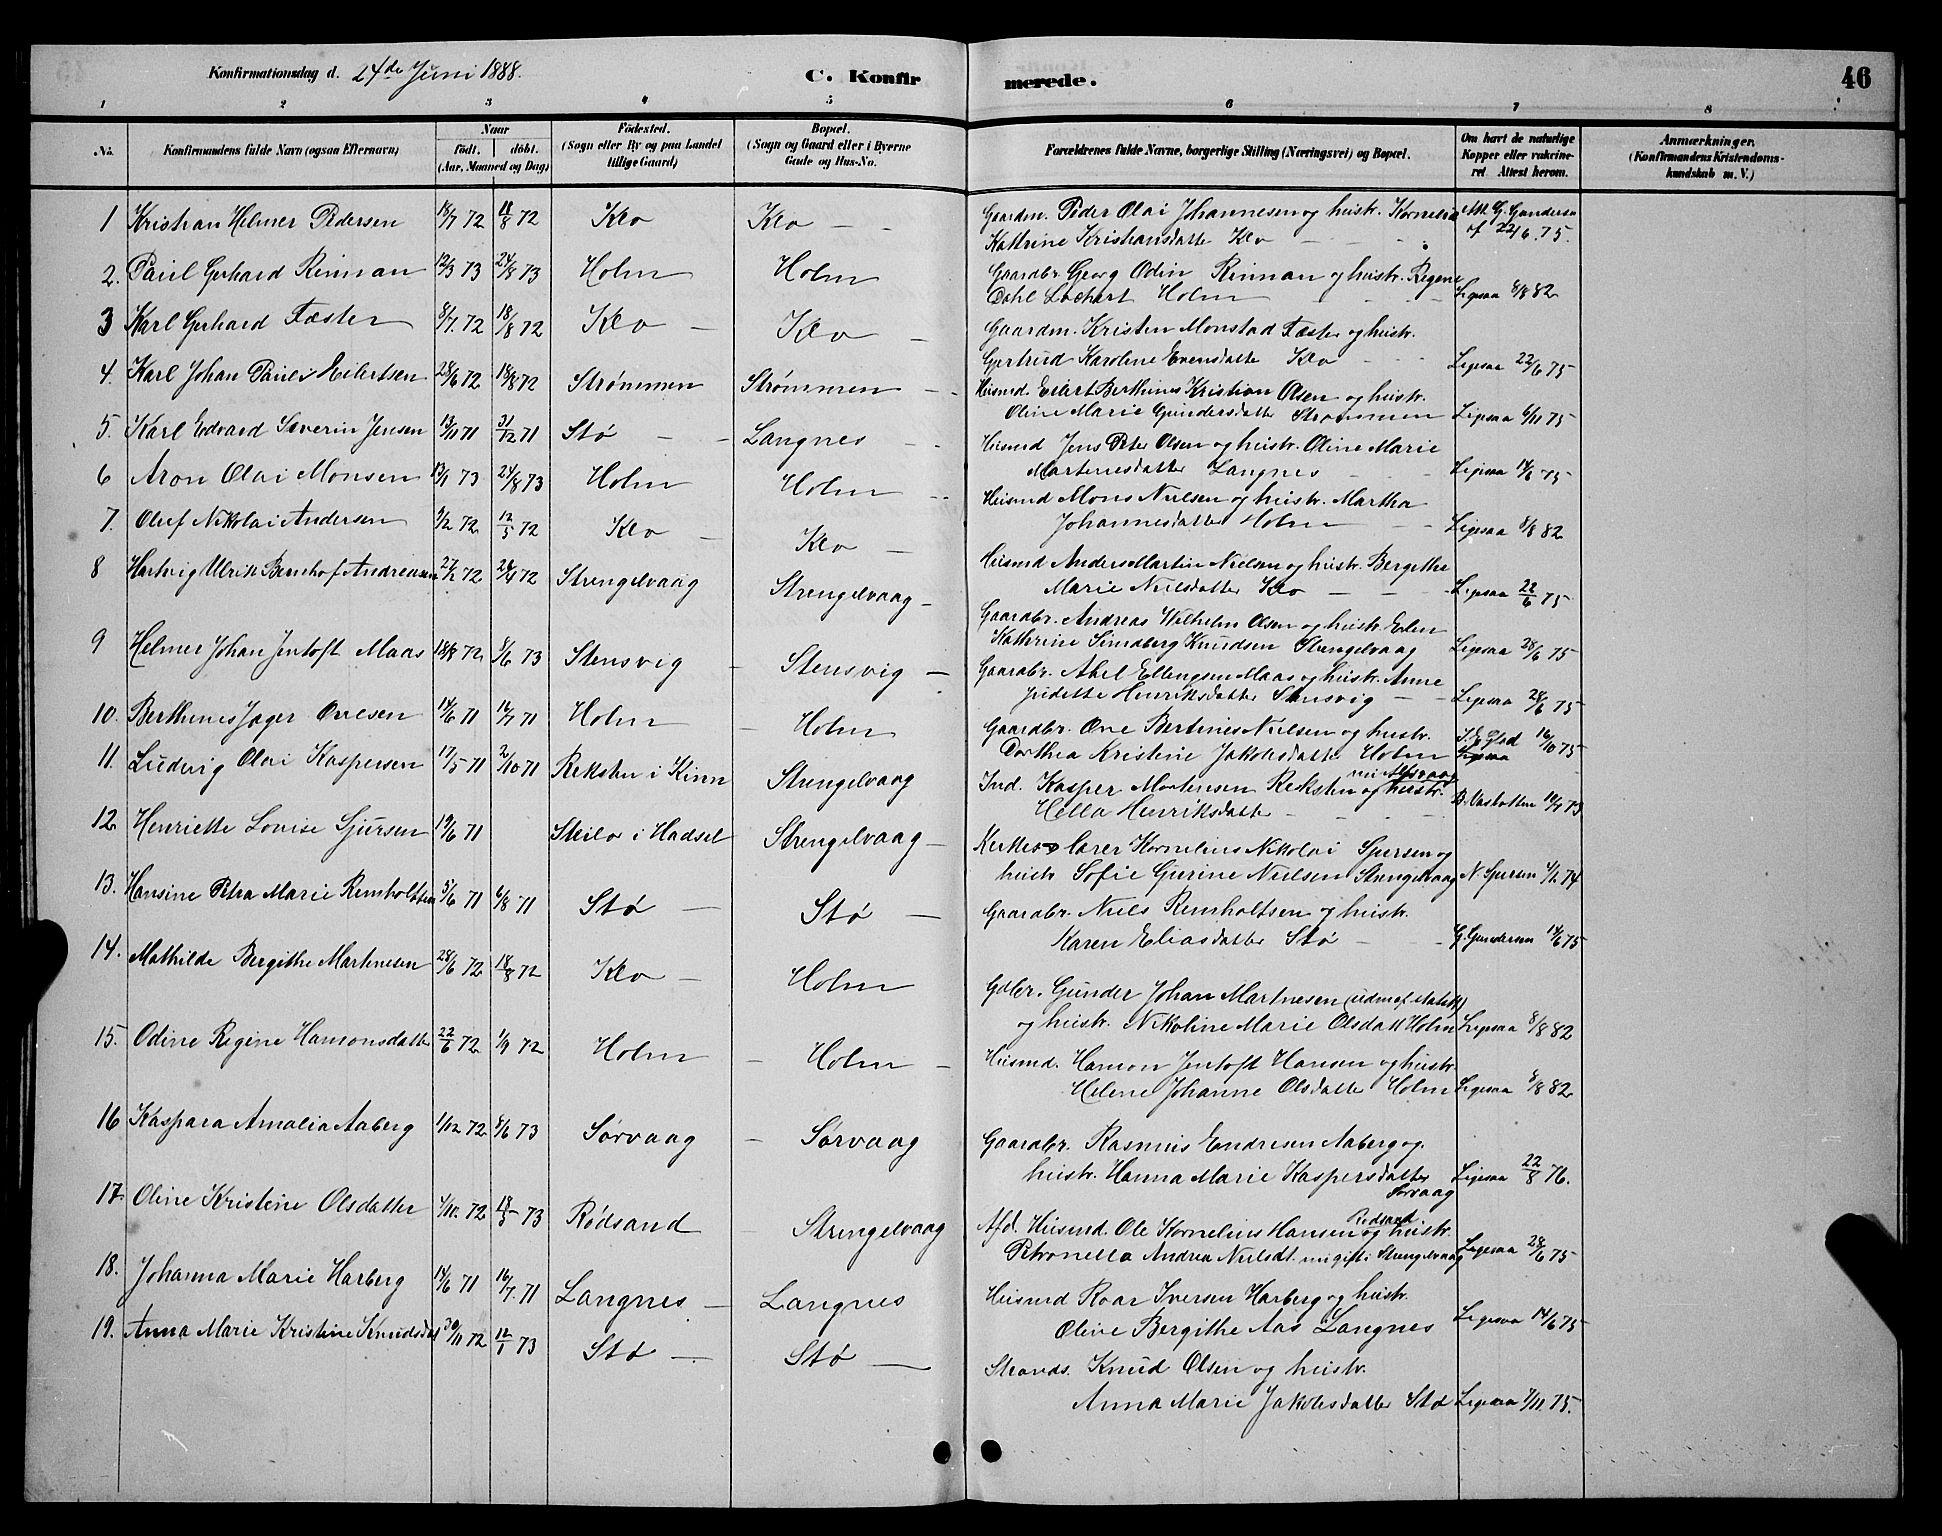 Konfirmationsdag d. 24de Juni 1888.
C. Konfir
merede.
46
1 2 3 4 5 6 7 8
No.
Konfirmandens fulde Navn (ogsaa Efternavn)
Naar
födt. döbt.
(Aar, Maaned og Dag)
Födested.
(Sogn eller By og paa Landet
tillige Gaard)
Bopæl.
(Sogn og Gaard eller i Byerne
Gade og Hus-No.
Forældrenes fulde Navne, borgerlige Stilling (Næringsvei) og Bopæl.
Om havt de naturlige
Kopper eller vakcine-
ret Attest herom.
Anmærkninger.
(Konfirmandens Kristendoms-
kundskab m. V.)
1 Kristian Helmer Pedersen 18/7 72 11/8 72 Klo Klo
Gaardm. Peder Olai Johannesen og hustr. Kornelia
Kathrine Kristiansdatter Klo
Att. G. Gundersen
af 22/6. 75.
2. Paul Gerhard Rinman 12/3 73 24/8 73 Holm Holm
Gaardbr. Georg Odin Rinman og hustr. Regine
Dahl Lochert Holm Ligesaa 8/8 82
3 Karl Gerhard Fæster 8/7. 72 18/8 72 Klo Klo
Gaardm. Kristen Monstad Fæster og hustr.
Gertrud Karoline Evensdatter Klo Ligesaa 22/6 75
4. Karl Johan Pauli Eilertsen 28/6 72 18/8 72 Strømmen Strømmen
Husmd. Eilert Berthinus Kristian Olsen og hustr.
Oline Marie Gundersdatter Strømmen Ligesaa 6/11 75
5. Karl Edvard Severin Jensen 13/11 71 31/12 71 Stø Langnes
Husmd Jens Peter Olsen og hustr. Oline Marie
Martinesdatter Langnes Ligesaa 14/6 75
6 Aron Olai Monsen 13/1 73 24/8 73 Holm Holm
Husmd Mons Nielsen og hustr. Martha
Johannesdatter Holm Ligesaa 8/8 82
7. Oluf Nikolai Andersen 9/2 72 12/5 72 Klo Klo
Husmd Anders Martin Nielsen og hustr. Bergithe
Marie Nielsdatter Klo Ligesaa 22/6 75
8 Hartvig Ulrik Bernhof Andreasen 27/2 72 26/4 72 Strengelvaag Strengelvaag
Gaardbr. Andreas Wilhelm Olsen og hustr. Elen
Kathrine Sundberg Knudsen Strengelvaag Ligesaa 28/6 75
9 Helmer Johan Jentoft Maas 18/8 72 8/6 73 Stensvig Stensvig
Gaardbr. Abel Ellingsen Maas og hustr. Anne
Judette Henriksdatter Stensvig Ligesaa 28/6 75
10. Berthines Jæger Ovesen 14/6 71 16/7 71 Holm Holm
Gaardbr. Ove Bertines Nielsen og hustr.
Dorthea Kristine Jakobsdatter Holm 16/10 75
11. Ludvig Olai Kaspersen 17/5 71 2/10 71 Reksten i Kinn Strengelvaag
Ind. Kasper Mortensen Reksten og hustr.
nu Alsvaag
Hella Henriksdatter
12 Henriette Lovise Sjursen 19/6 71 Skilo i Hadsel Strengelvaag
Kirkes-lærer Kornelius Nikolai Sjursen og
hustr Sofie Gurine Nielsen Strengelvaag N. Sjursen 4/2 74
13. Hansine Petra Marie Reinholtsen 5/6 71 6/8 71 Stø Stø
Gaardbr. Niels Reinholtsen og hustr.
Karen Eliasdatter Stø G. Gundersen 14/6 75
14. Mathilde Bergithe Martinesen 28/6 72 18/8 72 Klo Holm
Gdbr. Gunder Johan Martinesen
og hustr. Nikoline Marie Olsdatt. Holm Ligesaa 8/8 82
15. Odine Regine Hamonsdatter 22/6 72 1/9 72 Holm Holm
Husmd. Hamon Jentoft Hansen og hustr.
Helene Johanne Olsdatter Holm Ligesaa 8/8 82
16 Kaspara Amalia Aaberg 1/12 72 8/6 73 Sørvaag Sørvaag
Gaardbr. Rasmus Endresen Aaberg og
hustr. Hanna Marie Kaspersdatter Ligesaa 22/8 76.
Sørvaag
17. Oline Kristine Olsdatter 4/10. 72 18/5 73 Rødsand Strengelvaag
Rødsand
Afd. Husmd. Ole Kornelius Hansen og hustr.
Petronella Andrea Nielsdt. nu gift i Strengelvaag Ligesaa 28/6 75
18. Johanna Marie Harberg 14/6 71 16/7. 71 Langnes Langnes
Husmd Roar Iversen Harberg og hustr.
Oline Bergithe Aas Langnes Ligesaa 14/6 75
19. Anna Marie Kristine Knudsdat 30/11 72 12/1 73 Stø Stø
Strands. Knud Olsen og hustr.
Anna Marie Jakobsdatter Stø Ligesaa 7/11. 75.